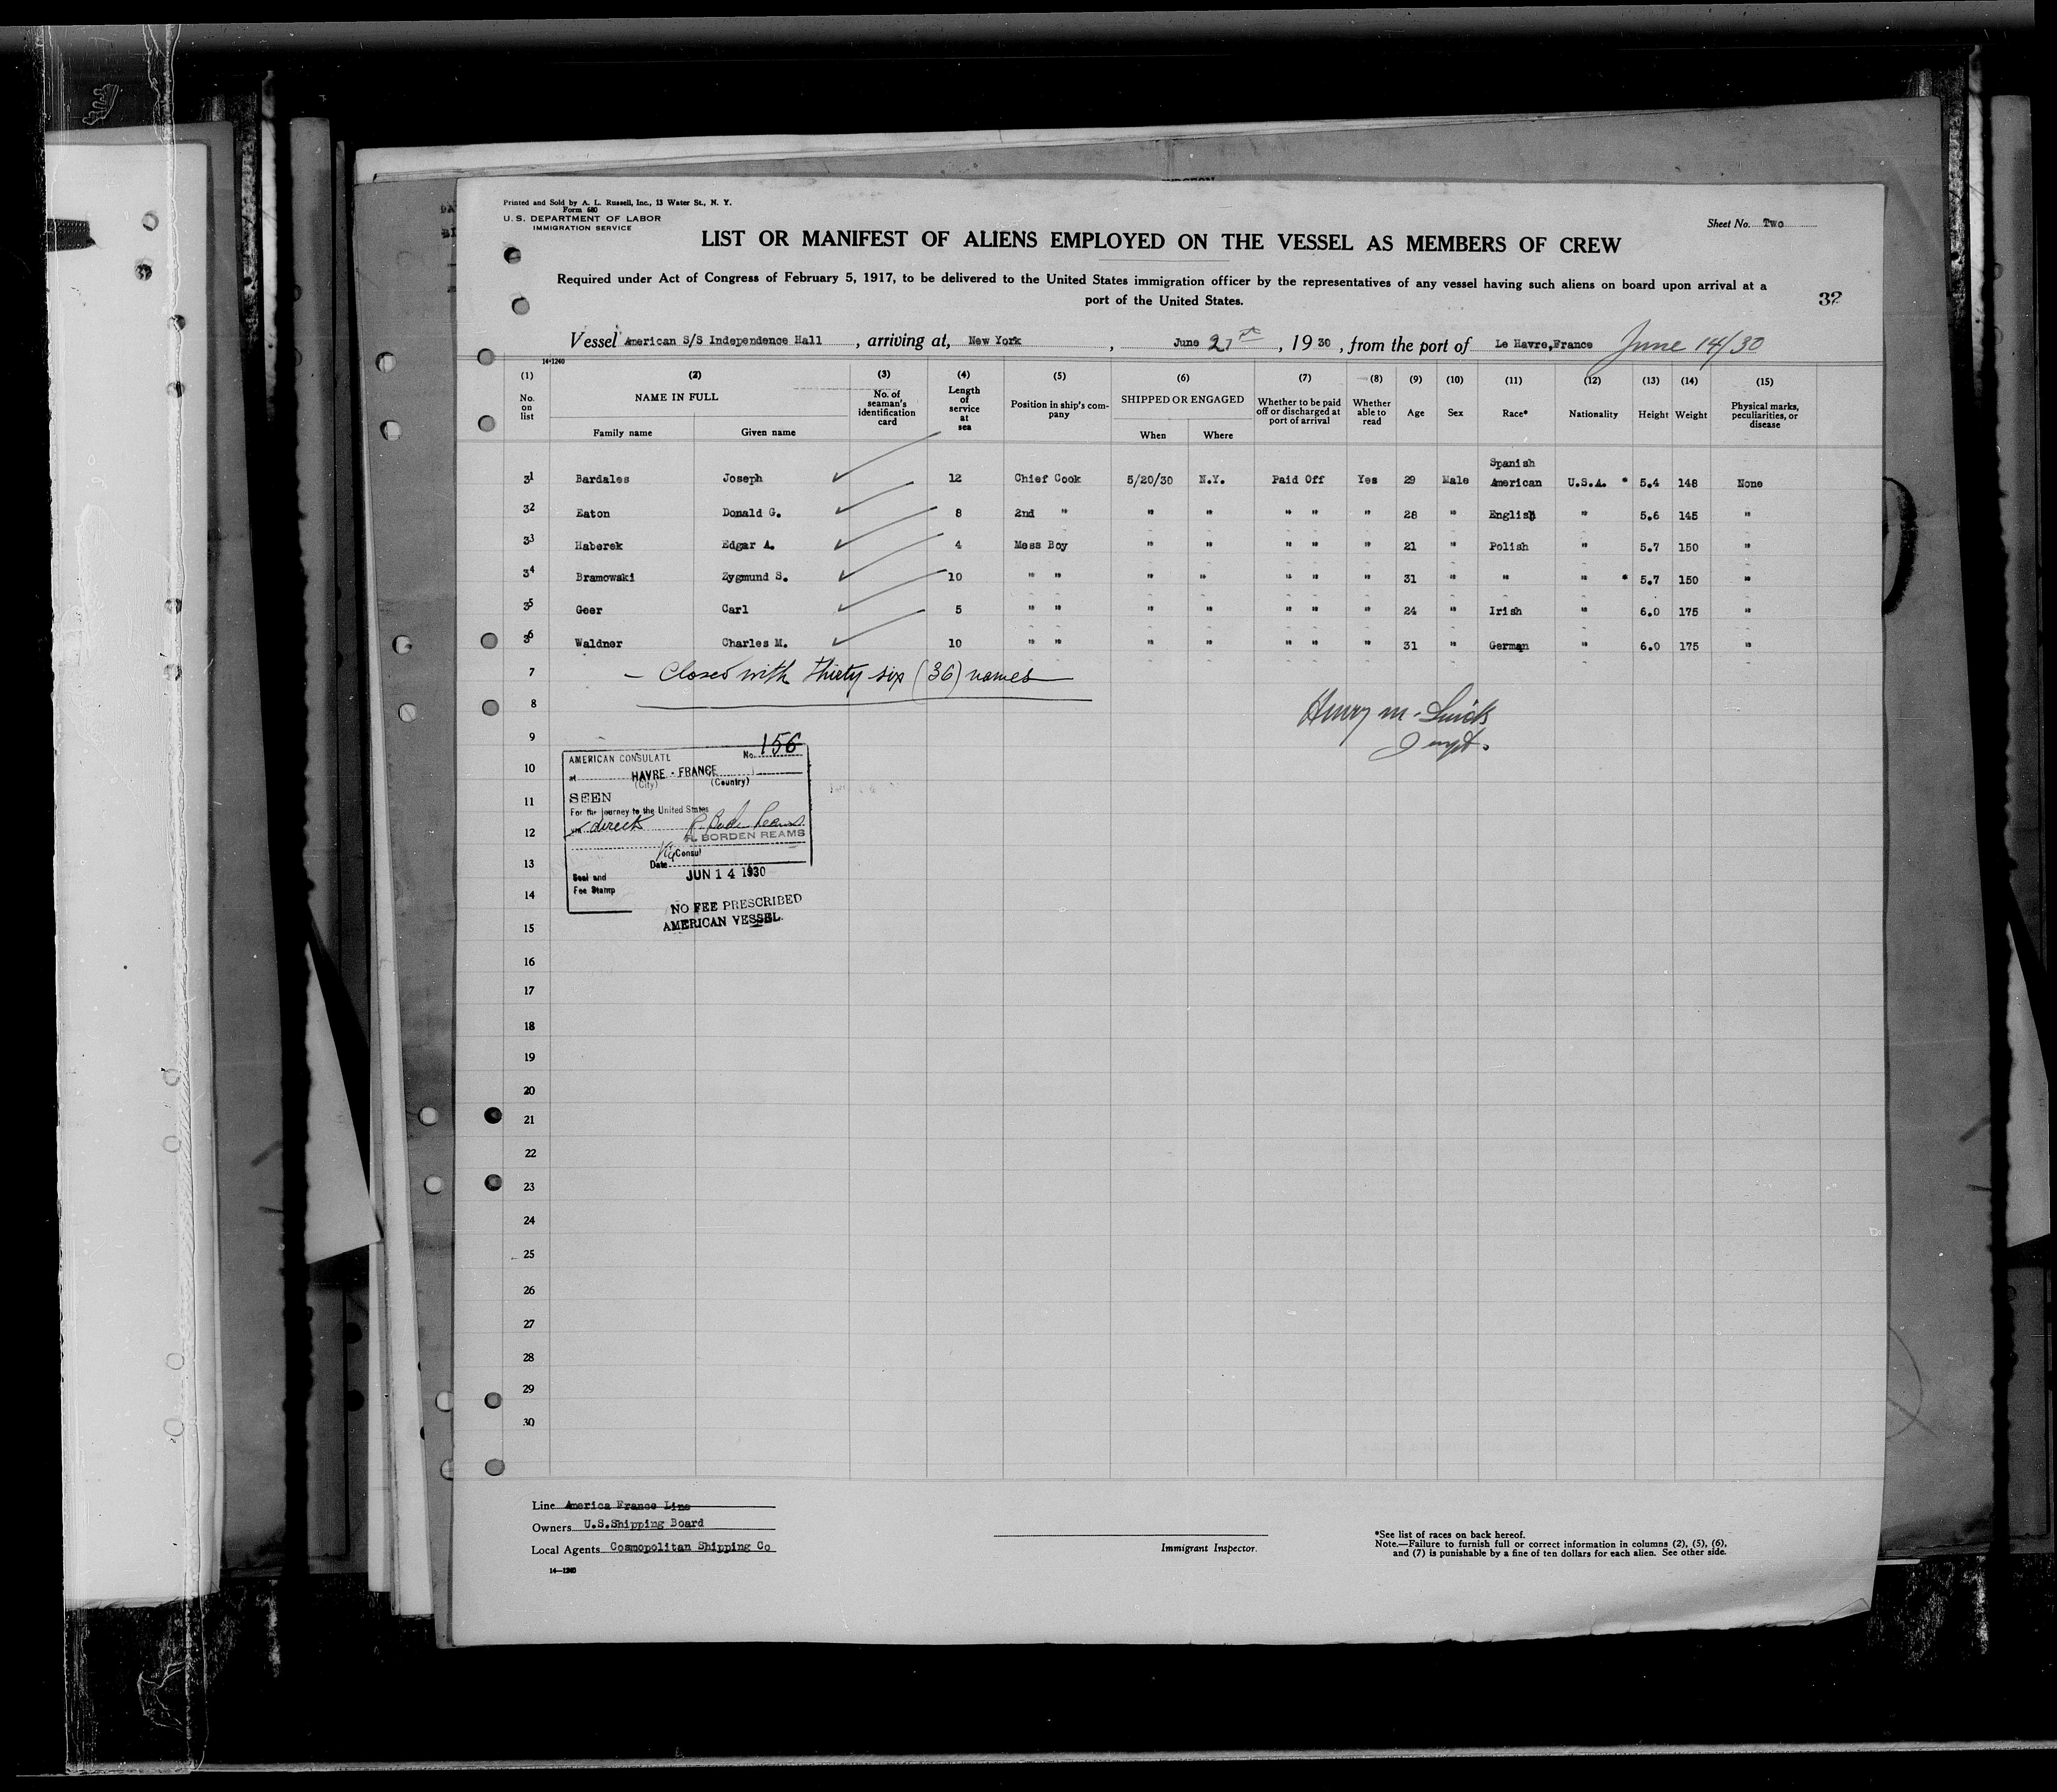 Printed and Sold by A. L. Russell, Inc., 13 Water St., N. Y.
Form 680
U. S. DEPARTMENT OF LABOR
IMMIGRATION SERVICE
Sheet No. Two
LIST OR MANIFEST OF ALIENS EMPLOYED ON THE VESSEL AS MEMBERS OF CREW
Required under Act of Congress of February 5, 1917, to be delivered to the United States immigration officer by the representatives of any vessel having such aliens on board upon arrival at a
port of the United States.
32
Vessel American S/S Independence Hall, arriving at, New York, June 27th, 1930, from the port of Le Havre,France June 14/30
14-1240
(1) (2) (3) (4) (5) (6) (7) (8) (9) (10) (11) (12) (13) (14) (15)
No. on list NAME IN FULL Family name Given name No. of seaman's identification card Length of service at sea Position in ship's company SHIPPED OR ENGAGED When Where Whether to be paid off or discharged at port of arrival Whether able to read Age Sex Race* Nationality Height Weight Physical marks, peculiarities, or disease
31 Bardales Joseph 12 Chief Cook 5/20/30 N.Y. Paid Off Yes 29 Male Spanish American U.S.A. * 5.4 148 None
32 Eaton Donald G. 8 2nd " " " " " " 28 " English " 5.6 145 "
33 Haberek Edgar A. 4 Mess Boy " " " " " 21 " Polish " 5.7 150 "
34 Bramowski Zygmund S. 10 " " " " " " " 31 " " " * 5.7 150 "
35 Geer Carl 5 " " " " " " " 24 " Irish " 6.0 175 "
36 Waldner Charles M. 10 " " " " " " " 31 " German " 6.0 175 "
7 — Closed with thirty six (36) names
8
Henry M.
9
10
11
12
13
14
15
16
17
18
19
20
21
22
23
24
25
26
27
28
29
30
AMERICAN CONSULATE No. 156
at HAVRE - FRANCE
(City) (Country)
SEEN
For the journey to the United States
via direct
R. BORDEN REAMS
Vice Consul
Date JUN 14 1930
Seal and
Fee Stamp
NO FEE PRESCRIBED
AMERICAN VESSEL.
Line America France Line
Owners U.S.Shipping Board
Local Agents Cosmopolitan Shipping Co
14—1240
Immigrant Inspector.
*See list of races on back hereof.
Note.—Failure to furnish full or correct information in columns (2), (5), (6),
and (7) is punishable by a fine of ten dollars for each alien. See other side.